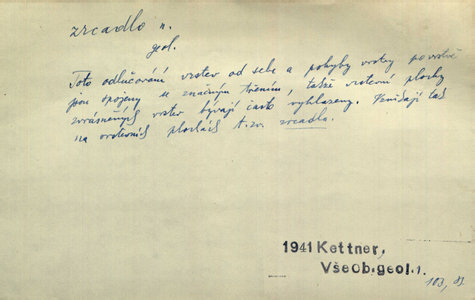 zrcadlo n.
geol.
Toto odlučování vrstev od sebe a pohyby vrstvy po vrstvě
jsou spojeny se značným třením, takže vrstevní plochy
zvrásněných vrstev bývají často vyhlazeny. Vznikají tak
na vrstevních plochách t.zv. zrcadla.
1941 Kettner,
Všeob.geol.1.
103, 83